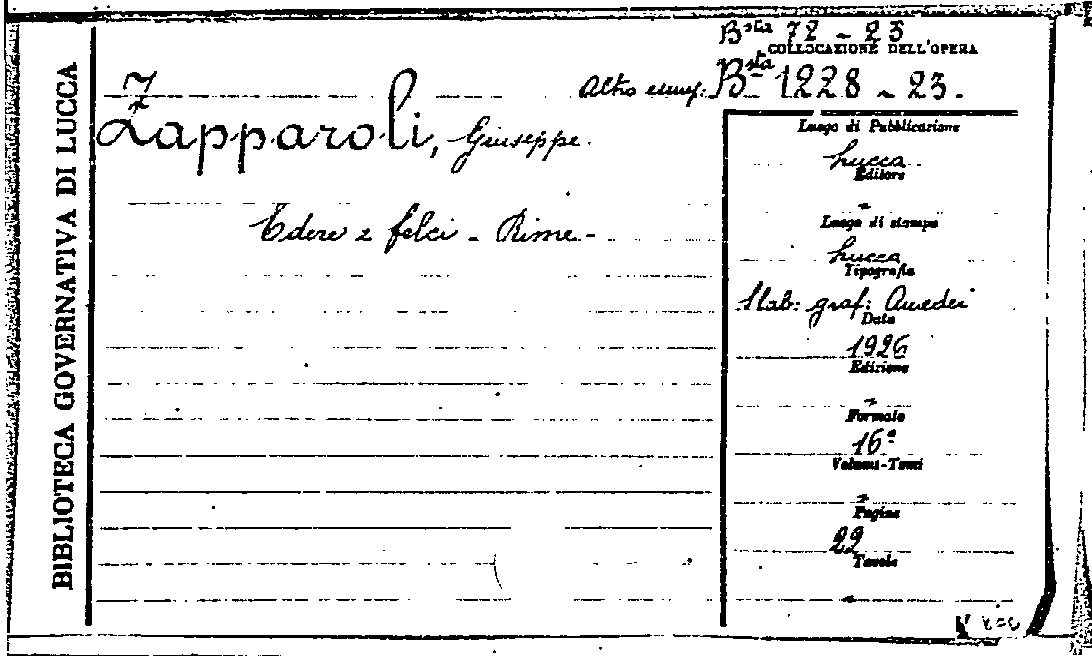 BIBLIOTECA GOVERNATIVA DI LUCCA
Bsta 72 - 23
COLLOCAZIONE DELL'OPERA
Z
Altro esemp: Bsta 1228 - 23.
Zapparoli, Giuseppe.
Edere e felci - Rime -
Luogo di Pubblicazione
Lucca
Editore
-
Luogo di stampa
Lucca
Tipografia
Stab: graf: Amedei
Data
1926
Edizione
-
Formato
16º
Volumi-Tomi
-
Pagine
22
Tavole
-